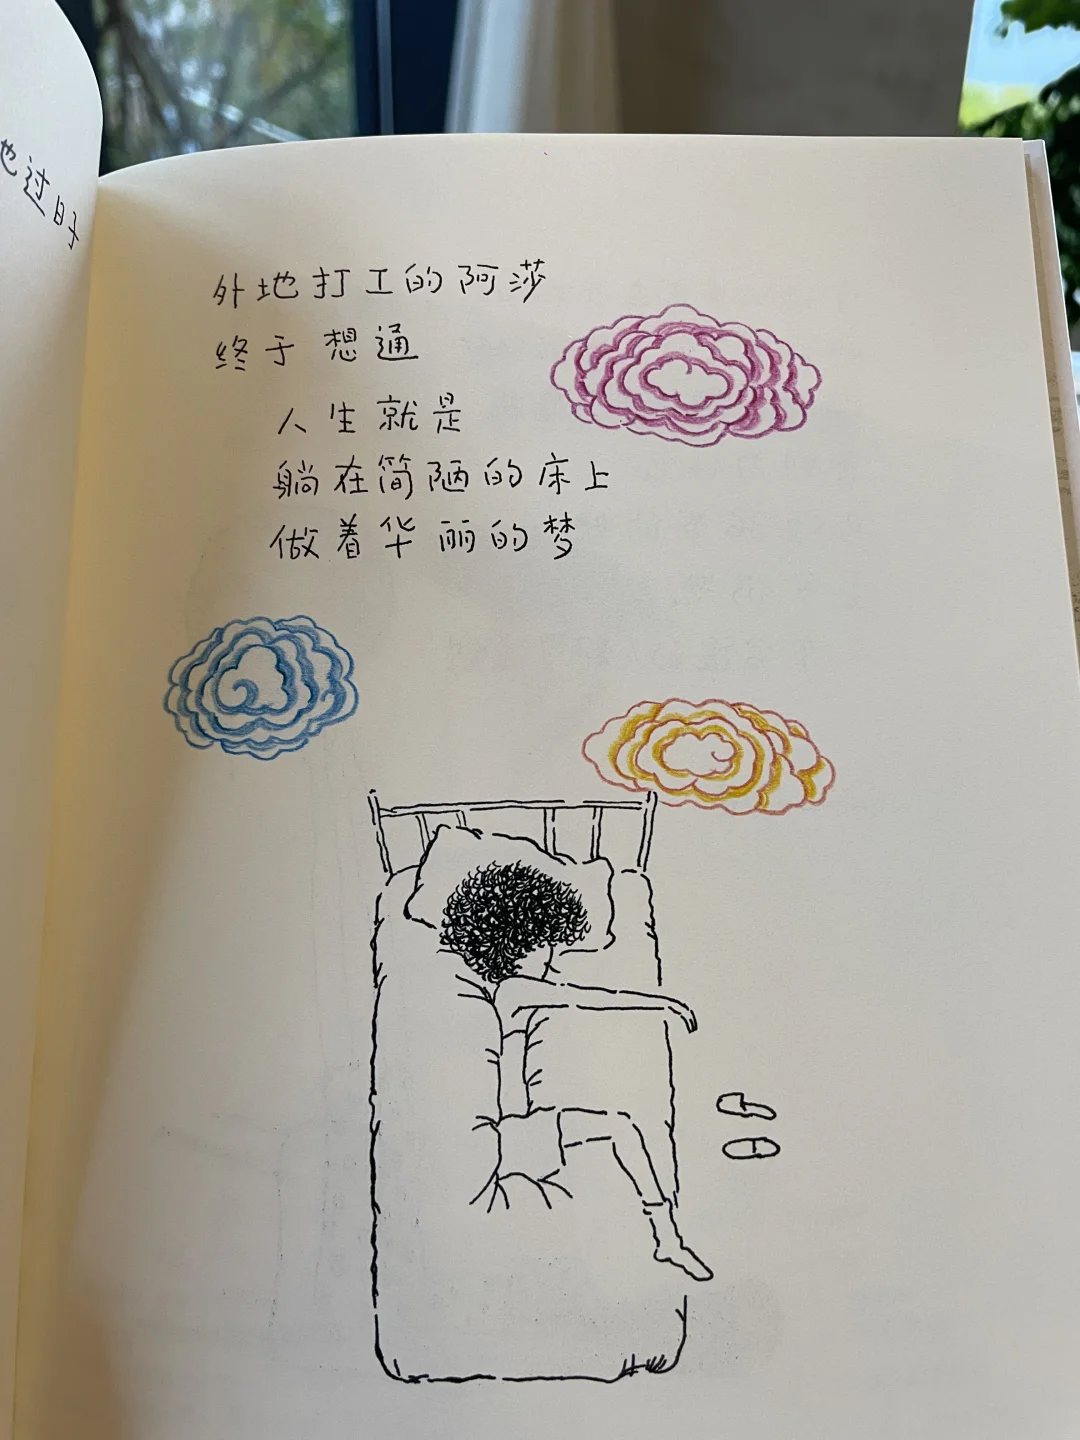 也过好
外地打工的阿莎
终于想通
人生就是
躺在简陋的床上
做着华丽的梦